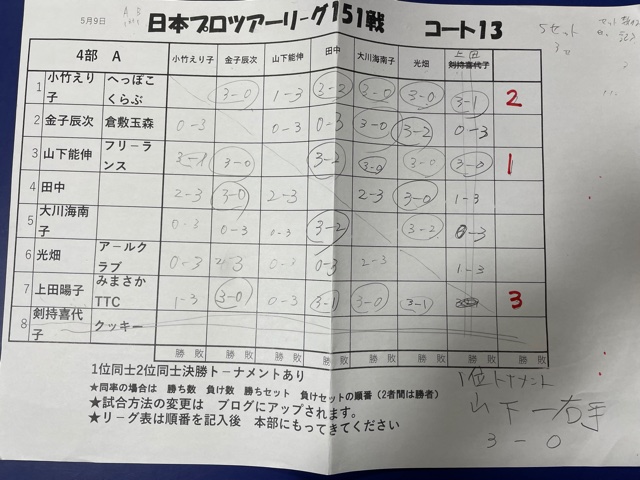 5月9日 日本プロツアーリーグ151戦 コート13
5セット
4部 A 小竹えり子 金子辰次 山下能伸 田中 大川海南子 光畑 上田 剣持喜代子
1 小竹えり子 へっぽこくらぶ 3-0 1-3 3-2 3-0 3-0 3-1 2
2 金子辰次 倉敷玉森 0-3 0-3 0-3 3-0 3-2 0-3
3 山下能伸 フリーランス 3-1 3-0 3-2 3-0 3-0 3-0 1
4 田中 2-3 3-0 2-3 2-3 3-0 1-3
5 大川海南子 0-3 0-3 0-3 3-2 3-2 0-3
6 光畑 アールクラブ 0-3 2-3 0-3 0-3 2-3 1-3
7 上田暘子 みまさかTTC 1-3 3-0 0-3 3-1 3-0 3-1 3
8 剣持喜代子 クッキー
勝 敗 勝 敗 勝 敗 勝 敗 勝 敗 勝 敗 勝 敗 勝 敗
1位同士2位同士決勝トーナメントあり
★同率の場合は 勝ち数 負け数 勝ちセット 負けセットの順番 (2者間は勝者)
★試合方法の変更は ブログにアップされます。
★リーグ表は順番を記入後 本部にもってきてください
1位トナメント
山下-右手
3-0